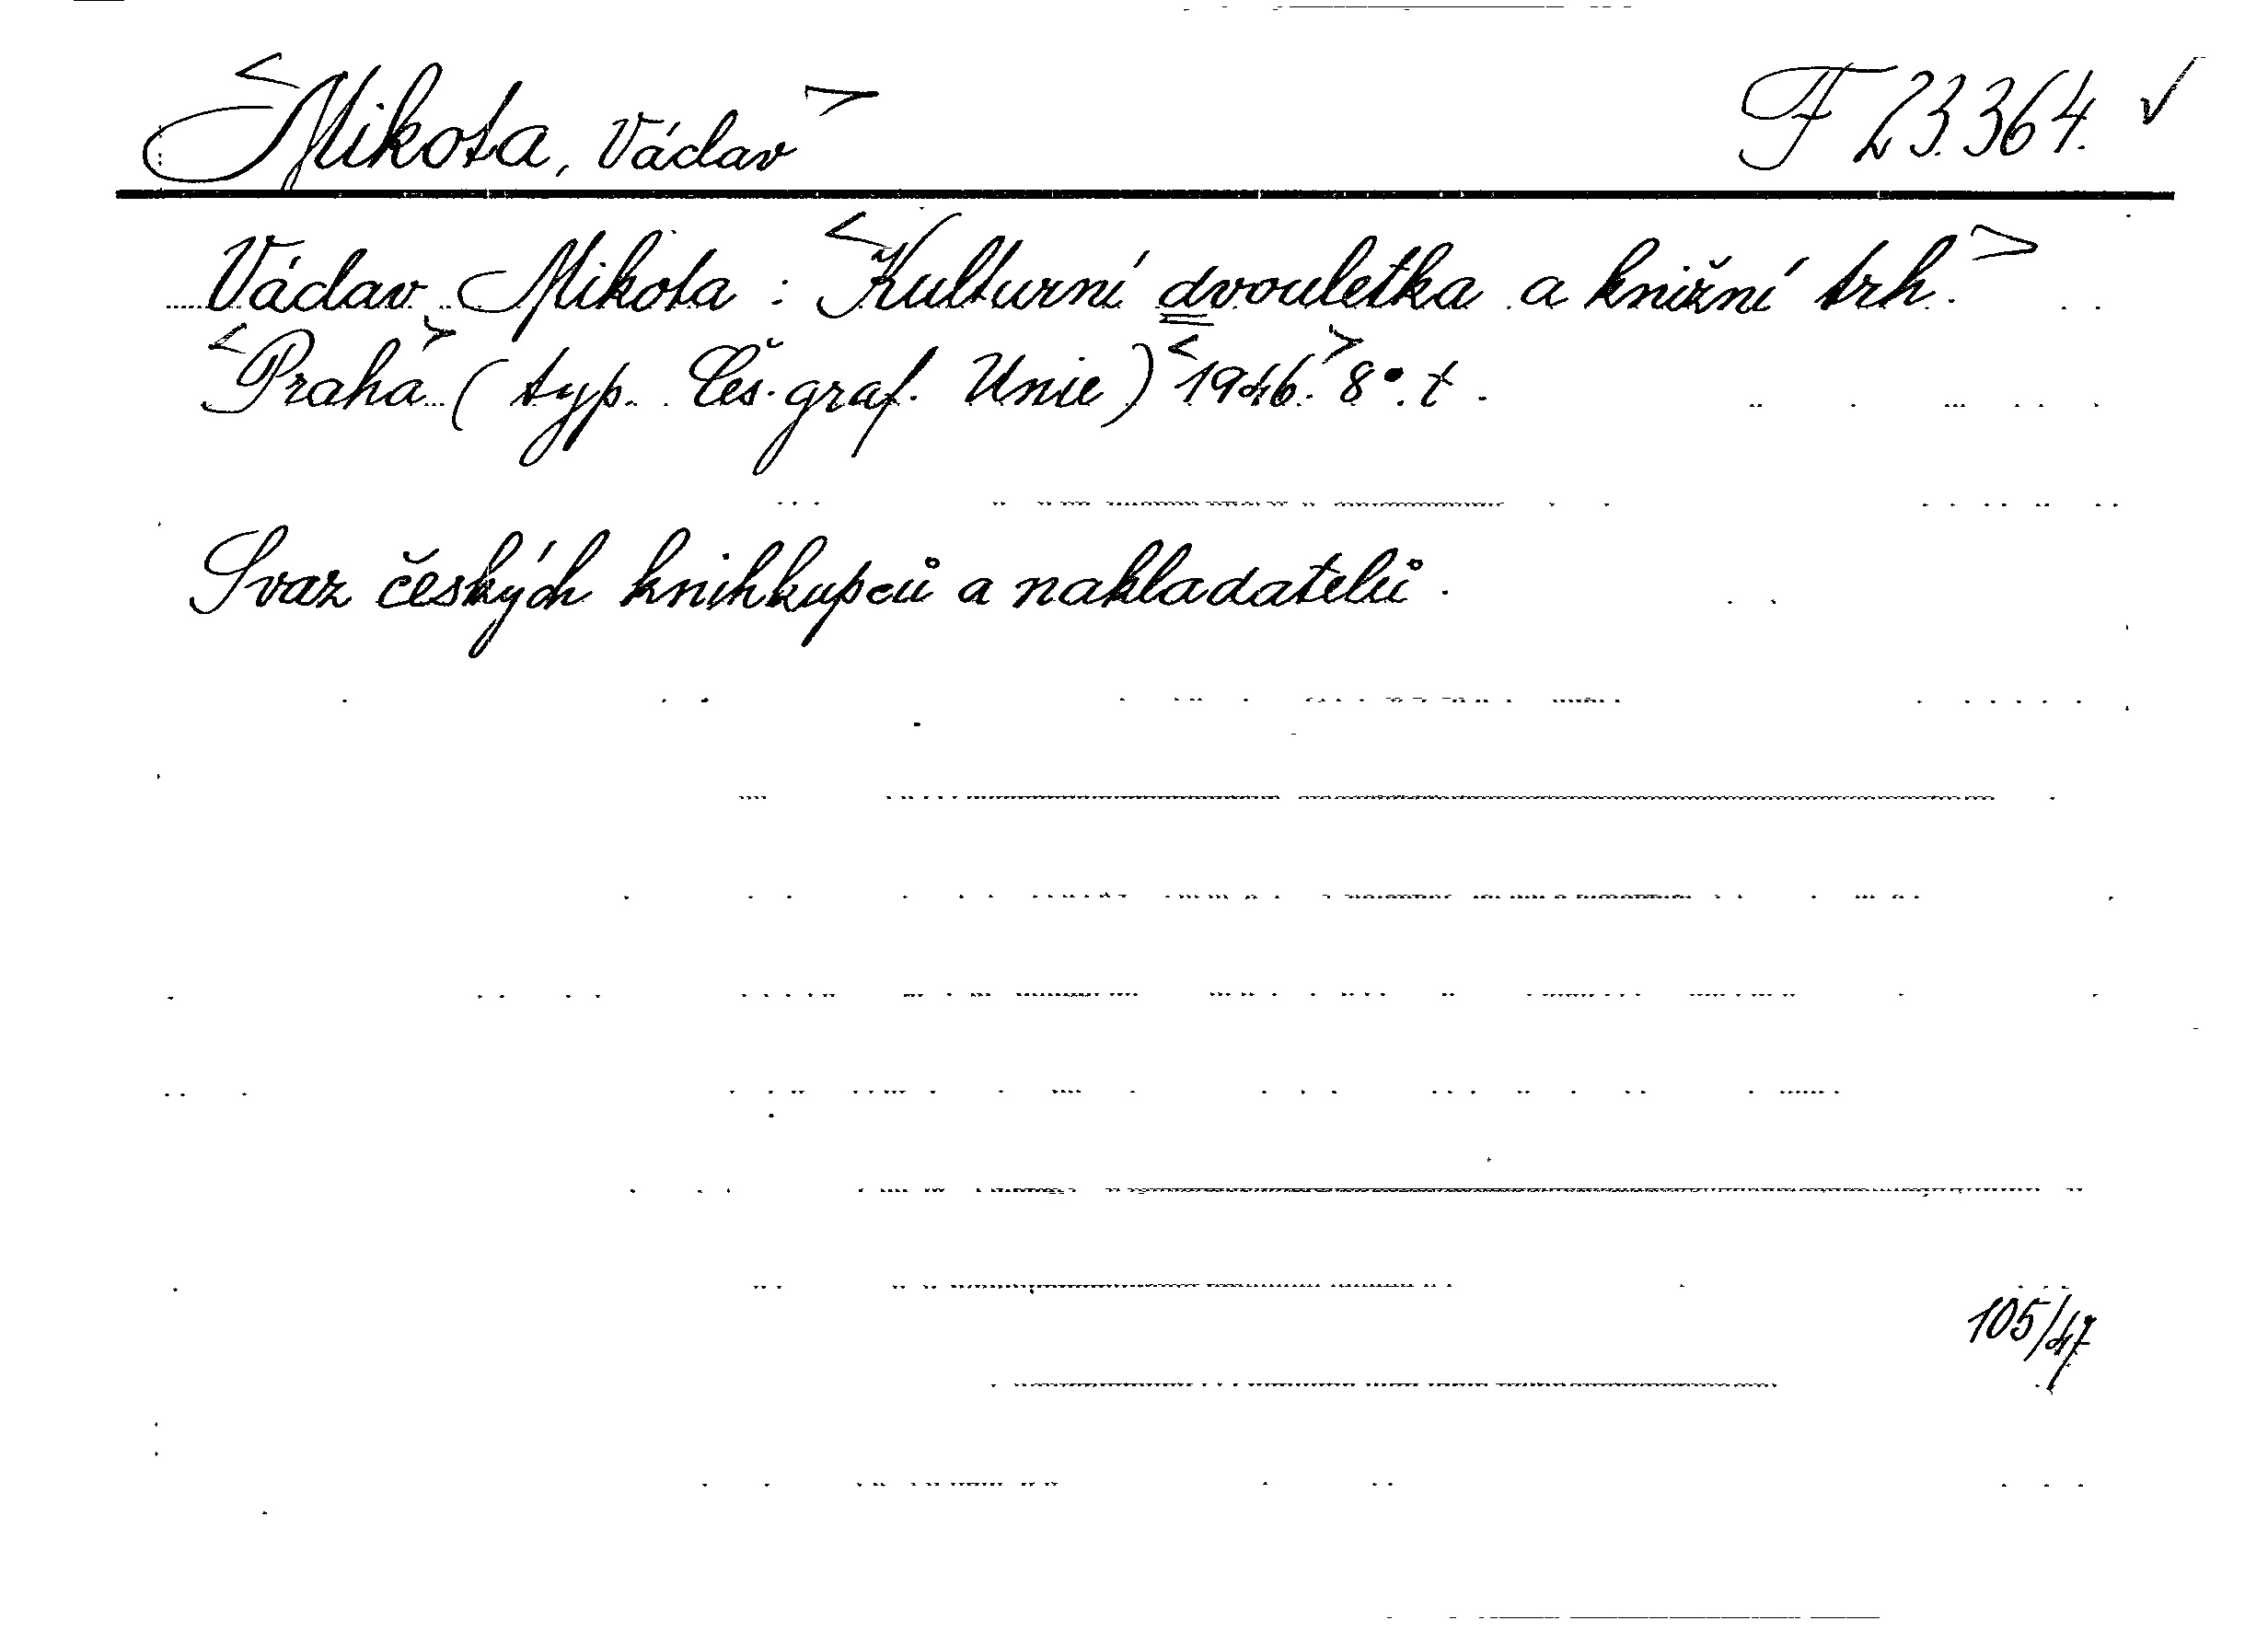 <Mikota, Václav> F 23.364. ✓
Václav Mikota : <Kulturní dvouletka a knižní trh.>
<Praha> (typ. Čes. graf. Unie) <1946.> 8°. t.
Svaz českých knihkupců a nakladatelů.
105/47